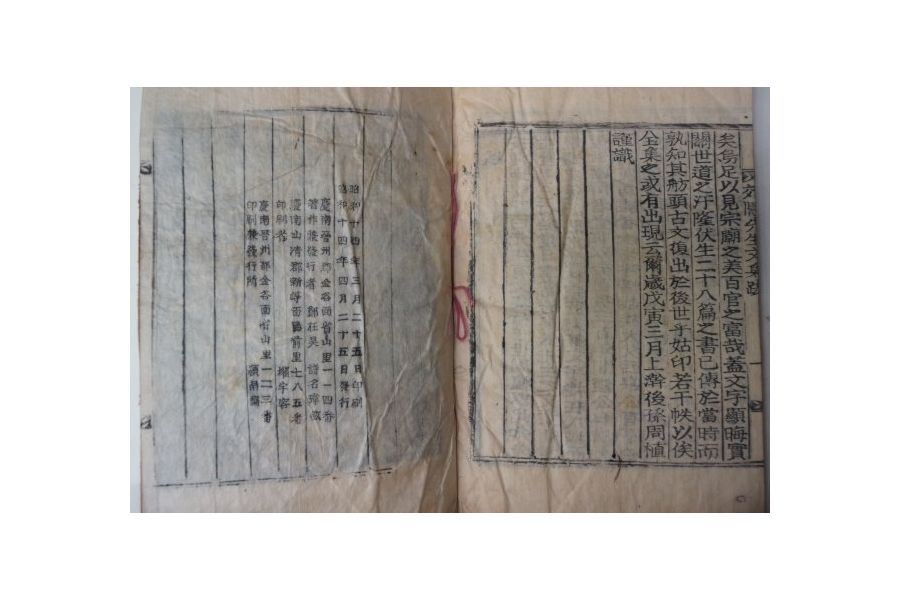 矣烏足以見宗廟之美百官之富哉蓋文字顯晦實
關世道之汙隆伏生二十八篇之書已傳於當時而
孰知其舫頭古文復出於後世乎姑印若干帙以俟
全集之或有出現云爾歲戊寅三月上澣後孫周植
謹識
昭和十四年三月二十五日印刷
昭和十四年四月二十五日發行
慶南晉州郡金谷面省山里一一四番
著作兼發行者 鄭在
慶南山清郡新等面 前里七八五番
印刷者
慶南晉州郡金谷面省山里一二三番
印刷兼發行所